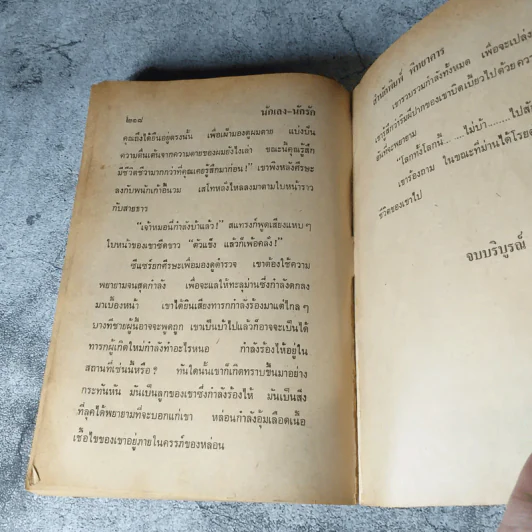 ๒๑๘
นักเลง-นักรัก
คุณถึงได้ยืนอยู่ตรงนั้น เพื่อเฝ้ามองดูผมตาย แบ่งปัน
ความตื่นเต้นจากความตายของผมยังไงเล่า ขณะนี้คุณรู้สึก
มีชีวิตชีวามากกว่าที่คุณเคยรู้สึกมาก่อน!" เขาพิงหลังศีรษะ
ลงกับพนักเก้าอี้นวม เสโทหลั่งไหลลงมาตามใบหน้าราว
กับสายธาร
"เจ้าหมอนี่กำลังบ้าแล้ว!" สแทรงก์พูดเสียงแหบ ๆ
ใบหน้าของเขาซีดขาว "ตัวแข็ง แล้วก็เพ้อคลั่ง!"
ซีแซร์ยกศีรษะเพื่อมองดูตำรวจ เขาต้องใช้ความ
พยายามจนสุดกำลัง เพื่อจะแลให้ทะลุม่านซึ่งกำลังตกลง
มาเบื้องหน้า เขาได้ยินเสียงทารกกำลังร้องมาแต่ไกล ๆ
บางทีชายผู้นี้อาจจะพูดถูก เขาเป็นบ้าไปแล้วก็อาจจะเป็นได้
ทารกผู้เกิดใหม่กำลังทำอะไรหนอ กำลังร้องไห้อยู่ใน
สถานที่เช่นนี้หรือ? ทันใดนั้นเขาก็เกิดทราบขึ้นมาอย่าง
กระทันหัน มันเป็นลูกของเขาซึ่งกำลังร้องไห้ มันเป็นสิ่ง
ที่ลุคได้พยายามที่จะบอกแก่เขา หล่อนกำลังอุ้มเลือดเนื้อ
เชื้อไขของเขาอยู่ภายในครรภ์ของหล่อน
สำนักพิมพ์ พิทยาคาร
เขารวบรวมกำลังทั้งหมด เพื่อจะเปล่ง
เขารู้สึกว่าริมฝีปากของเขาบิดเบี้ยวไปด้วยความ
อันที่จะพยายาม
"โลกทั้งโลกนี้ ....ไม่บ้า ......ไปสัก
เขาร้องถาม ในขณะที่ม่านได้โรยตัว
ชีวิตของเขาไป
จบบริบูรณ์